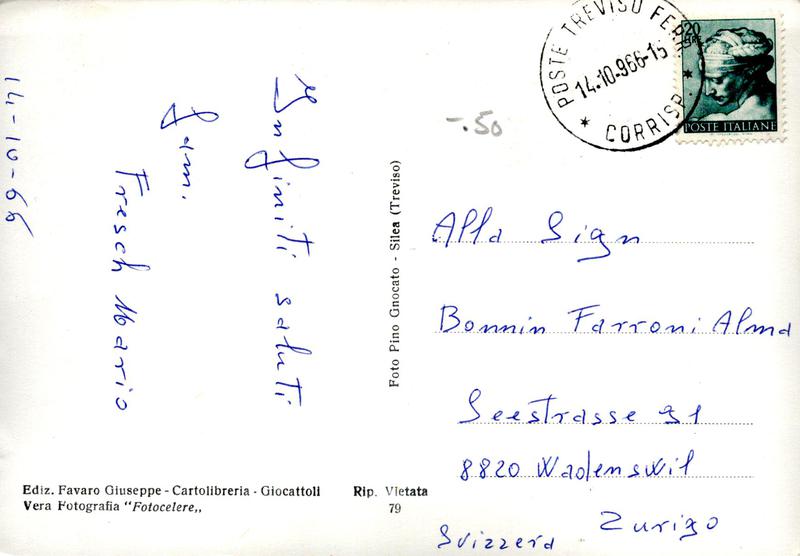 14-10-66
Infiniti saluti
fam.
Fresch Mario
Foto Pino Gnocato - Silea (Treviso)
Ediz. Favaro Giuseppe - Cartolibreria - Giocattoli
Vera Fotografia "Fotocelere„
Rip. Vietata
79
-.50
POSTE TREVISO FERR.
14.10.966-15
* CORRISP. *
20
LIRE
POSTE ITALIANE
Alla Sign
Bonnin Farroni Alma
Seestrasse 31
8820 Wadenswil
Zurigo
Svizzera